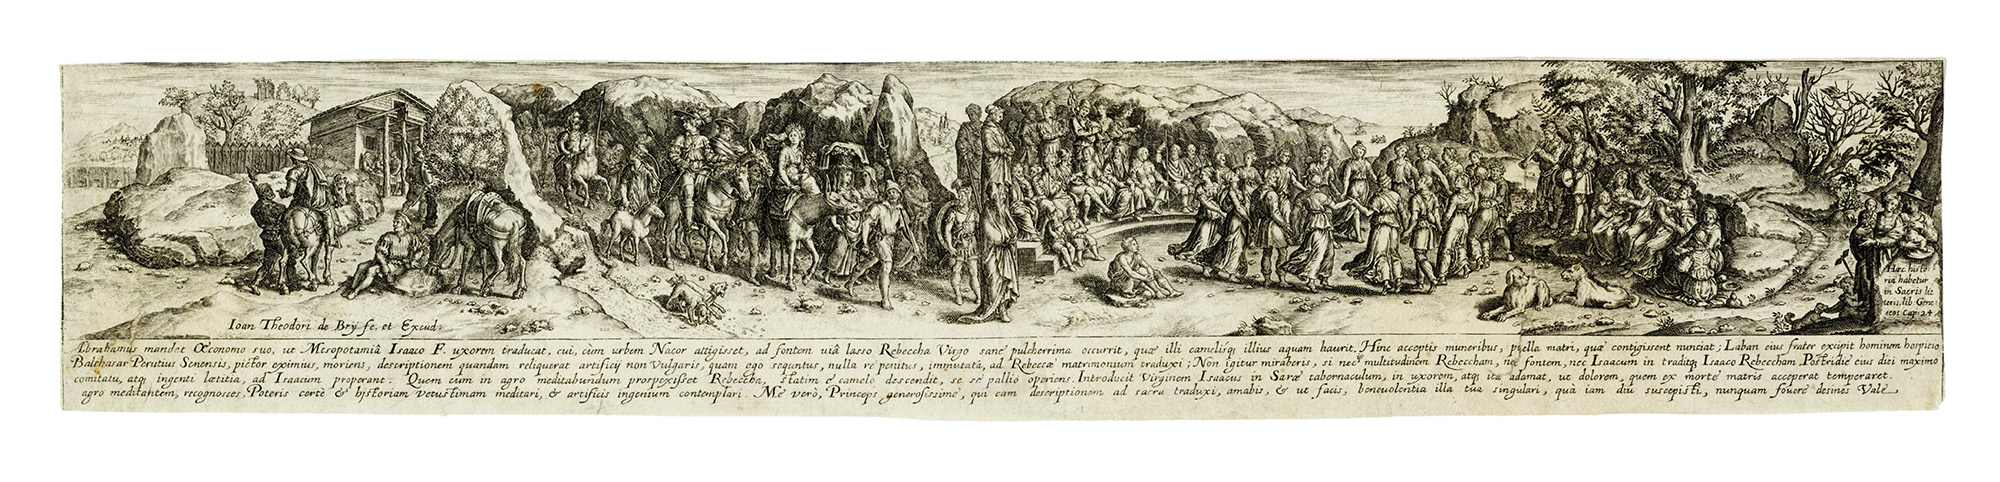 Ioan Theodori de Brÿ fe. et Excud:
Hæc histo:
ria habetur
in Sacris lit
teris, lib. Gene:
seos Cap: 24
Abrahamus mandat Œconomo suo, ut Mesopotamiâ Isaaco F. uxorem traducat, cui, cùm urbem Nacor attigisset, ad fontem viâ lasso Rebeccha Virgo sanè pulcherrima occurrit, quæ illi camelisq; illius aquam haurit. Hinc acceptis muneribus, puella matri, quæ contigissent nunciat; Laban eius frater excipit hominem hospitio
Balthasar Perutius Senensis, pictor eximius, moriens, descriptionem quandam reliquerat artificij non vulgaris, quam ego secuntus, nulla re penitus, immutatâ, ad Rebeccæ matrimonium traduxi; Non igitur miraberis, si nec multitudinem Rebeccham, nec fontem, nec Isaacum in traditq Isaaco Rebeccham. Postridiè eius diei maximo
comitatu, atq; ingenti lætitia, ad Isaacum properant. Quem cum in agro meditabundum prospexisset Rebeccha, statim è camelo descendit, se se pallio operiens. Introducit Virginem Isaacus in Saræ tabernaculum, in uxorem, atq; ita adamat, ut dolorem, quem ex morte matris acceperat temperaret.
agro meditantem, recognosces. Poteris certè & historiam vetustimam meditari, & artificis ingenium contemplari. Me verò, Princeps generosissime, qui eam descriptionem ad sacra traduxi, amabis, & ut facis, benevolentia illa tua singulari, quà iam diu suscepisti, nunquam fovere desines Vale